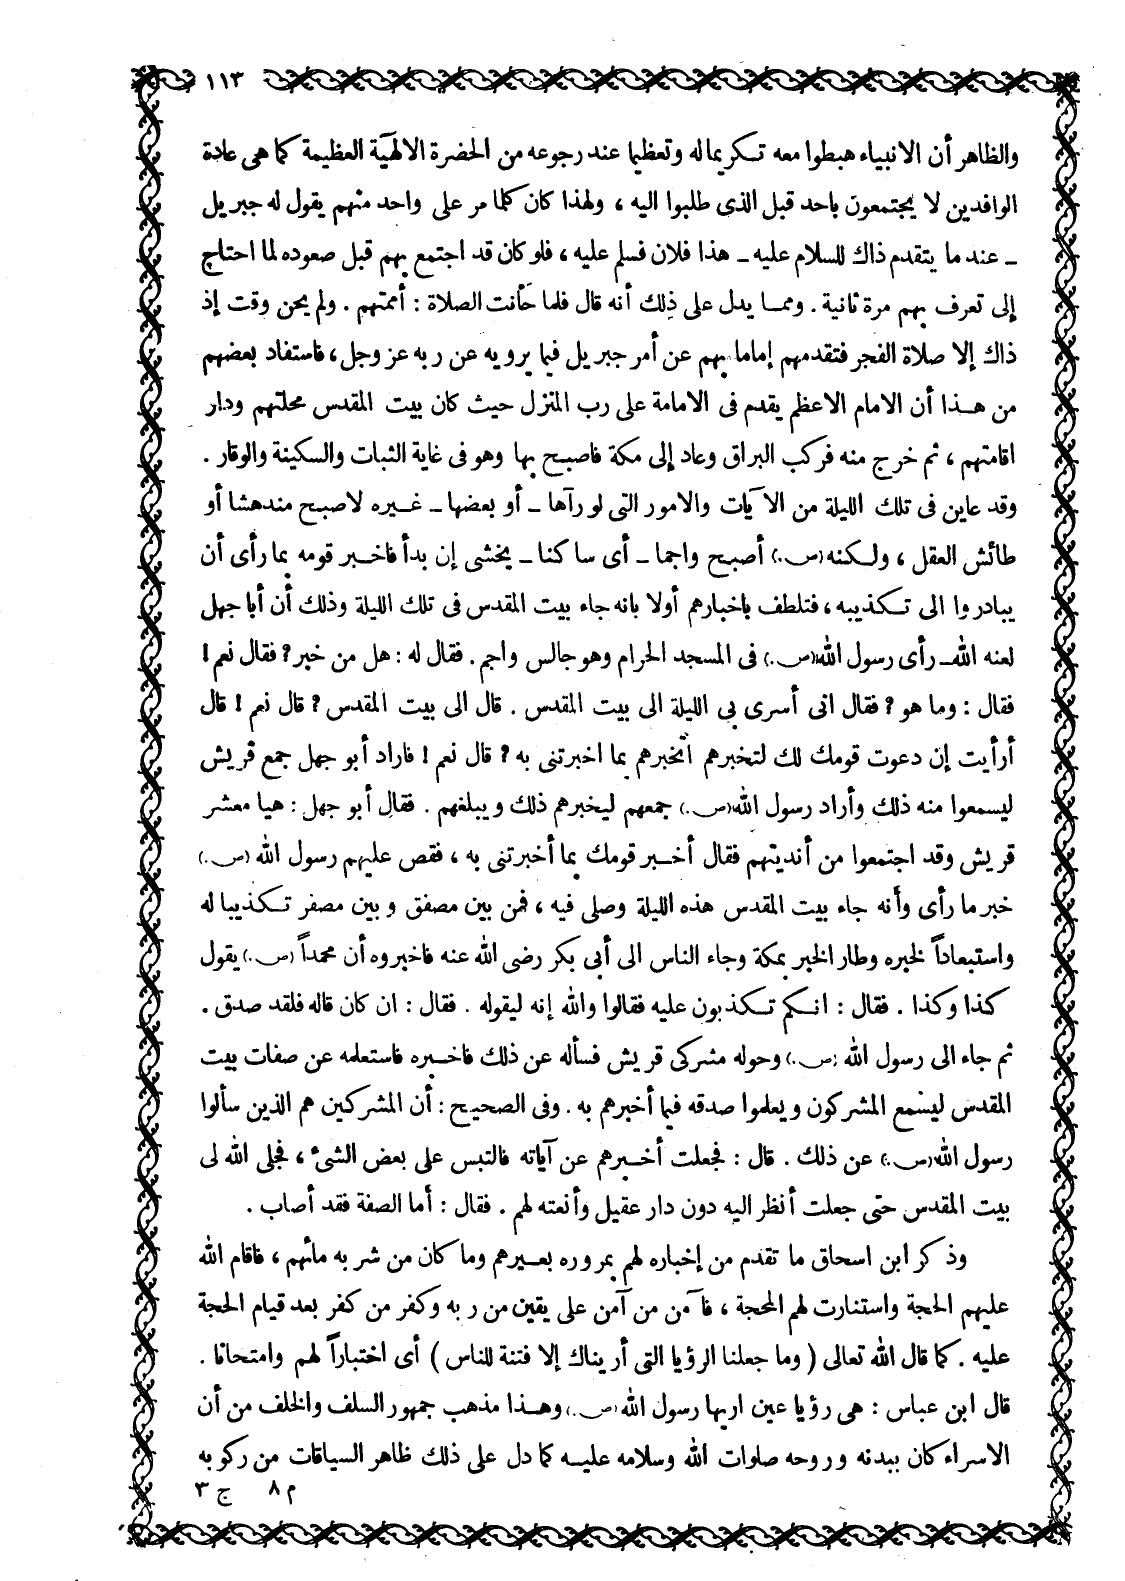 ١١٣
والظاهر أن الانبياء هبطوا معه تكريما له وتعظيما عند رجوعه من الحضرة الالهية العظيمة كما هى عادة
الوافدين لا يجتمعون باحد قبل الذى طلبوا اليه ، ولهذا كان كلما مر على واحد منهم يقول له جبريل
ـ عند ما يتقدم ذاك للسلام عليه ـ هذا فلان فسلم عليه ، فلو كان قد اجتمع بهم قبل صعوده لما احتاج
إلى تعرف بهم مرة ثانية . ومما يدل على ذلك أنه قال فلما حانت الصلاة : أممتهم . ولم يحن وقت إذ
ذاك إلا صلاة الفجر فتقدمهم إماما بهم عن أمر جبريل فيما يرويه عن ربه عز وجل ، فاستفاد بعضهم
من هذا أن الامام الاعظم يقدم فى الامامة على رب المنزل حيث كان بيت المقدس محلتهم ودار
اقامتهم ، ثم خرج منه فركب البراق وعاد إلى مكة فاصبح بها وهو فى غاية الثبات والسكينة والوقار .
وقد عاين فى تلك الليلة من الآيات والامور التى لو رآها ـ أو بعضها ـ غيره لاصبح مندهشا أو
طائش العقل ، ولكنه (ص.) أصبح واجما ـ أى ساكنا ـ يخشى إن بدأ فاخبر قومه بما رأى أن
يبادروا الى تكذيبه ، فتلطف باخبارهم أولا بانه جاء بيت المقدس فى تلك الليلة وذلك أن أبا جهل
لعنه الله ـ رأى رسول الله (ص.) فى المسجد الحرام وهو جالس واجم . فقال له : هل من خبر ? فقال نعم !
فقال : وما هو ? فقال انى أسرى بى الليلة الى بيت المقدس . قال الى بيت المقدس ? قال نعم ! قال
أرأيت إن دعوت قومك لك لتخبرهم اتخبرهم بما اخبرتنى به ? قال نعم ! فاراد أبو جهل جمع قريش
ليسمعوا منه ذلك وأراد رسول الله (ص.) جمعهم ليخبرهم ذلك ويبلغهم . فقال أبو جهل : هيا معشر
قريش وقد اجتمعوا من أنديتهم فقال أخبر قومك بما أخبرتنى به ، فقص عليهم رسول الله (ص.)
خبر ما رأى وأنه جاء بيت المقدس هذه الليلة وصلى فيه ، فمن بين مصفق وبين مصفر تكذيبا له
واستبعاداً لخبره وطار الخبر بمكة وجاء الناس الى أبى بكر رضى الله عنه فاخبروه أن محمداً (ص.) يقول
كذا وكذا . فقال : انكم تكذبون عليه فقالوا والله إنه ليقوله . فقال : ان كان قاله فلقد صدق .
ثم جاء الى رسول الله (ص.) وحوله مشركى قريش فسأله عن ذلك فاخبره فاستعلمه عن صفات بيت
المقدس ليسمع المشركون ويعلموا صدقه فيما أخبرهم به . وفى الصحيح : أن المشركين هم الذين سألوا
رسول الله (ص.) عن ذلك . قال : فجعلت أخبرهم عن آياته فالتبس على بعض الشىء ، فجلى الله لى
بيت المقدس حتى جعلت أنظر اليه دون دار عقيل وأنعته لهم . فقال : أما الصفة فقد أصاب .
وذكر ابن اسحاق ما تقدم من إخباره لهم بمروره بعيرهم وما كان من شربه مائهم ، فاقام الله
عليهم الحجة واستنارت لهم المحجة ، فآمن من آمن على يقين من ربه وكفر من كفر بعد قيام الحجة
عليه . كما قال الله تعالى ( وما جعلنا الرؤيا التى أريناك إلا فتنة للناس ) أى اختباراً لهم وامتحانا .
قال ابن عباس : هى رؤيا عين اريها رسول الله (ص.) وهذا مذهب جمهور السلف والخلف من أن
الاسراء كان ببدنه وروحه صلوات الله وسلامه عليه كما دل على ذلك ظاهر السياقات من ركوبه
م ٨ ج ٣